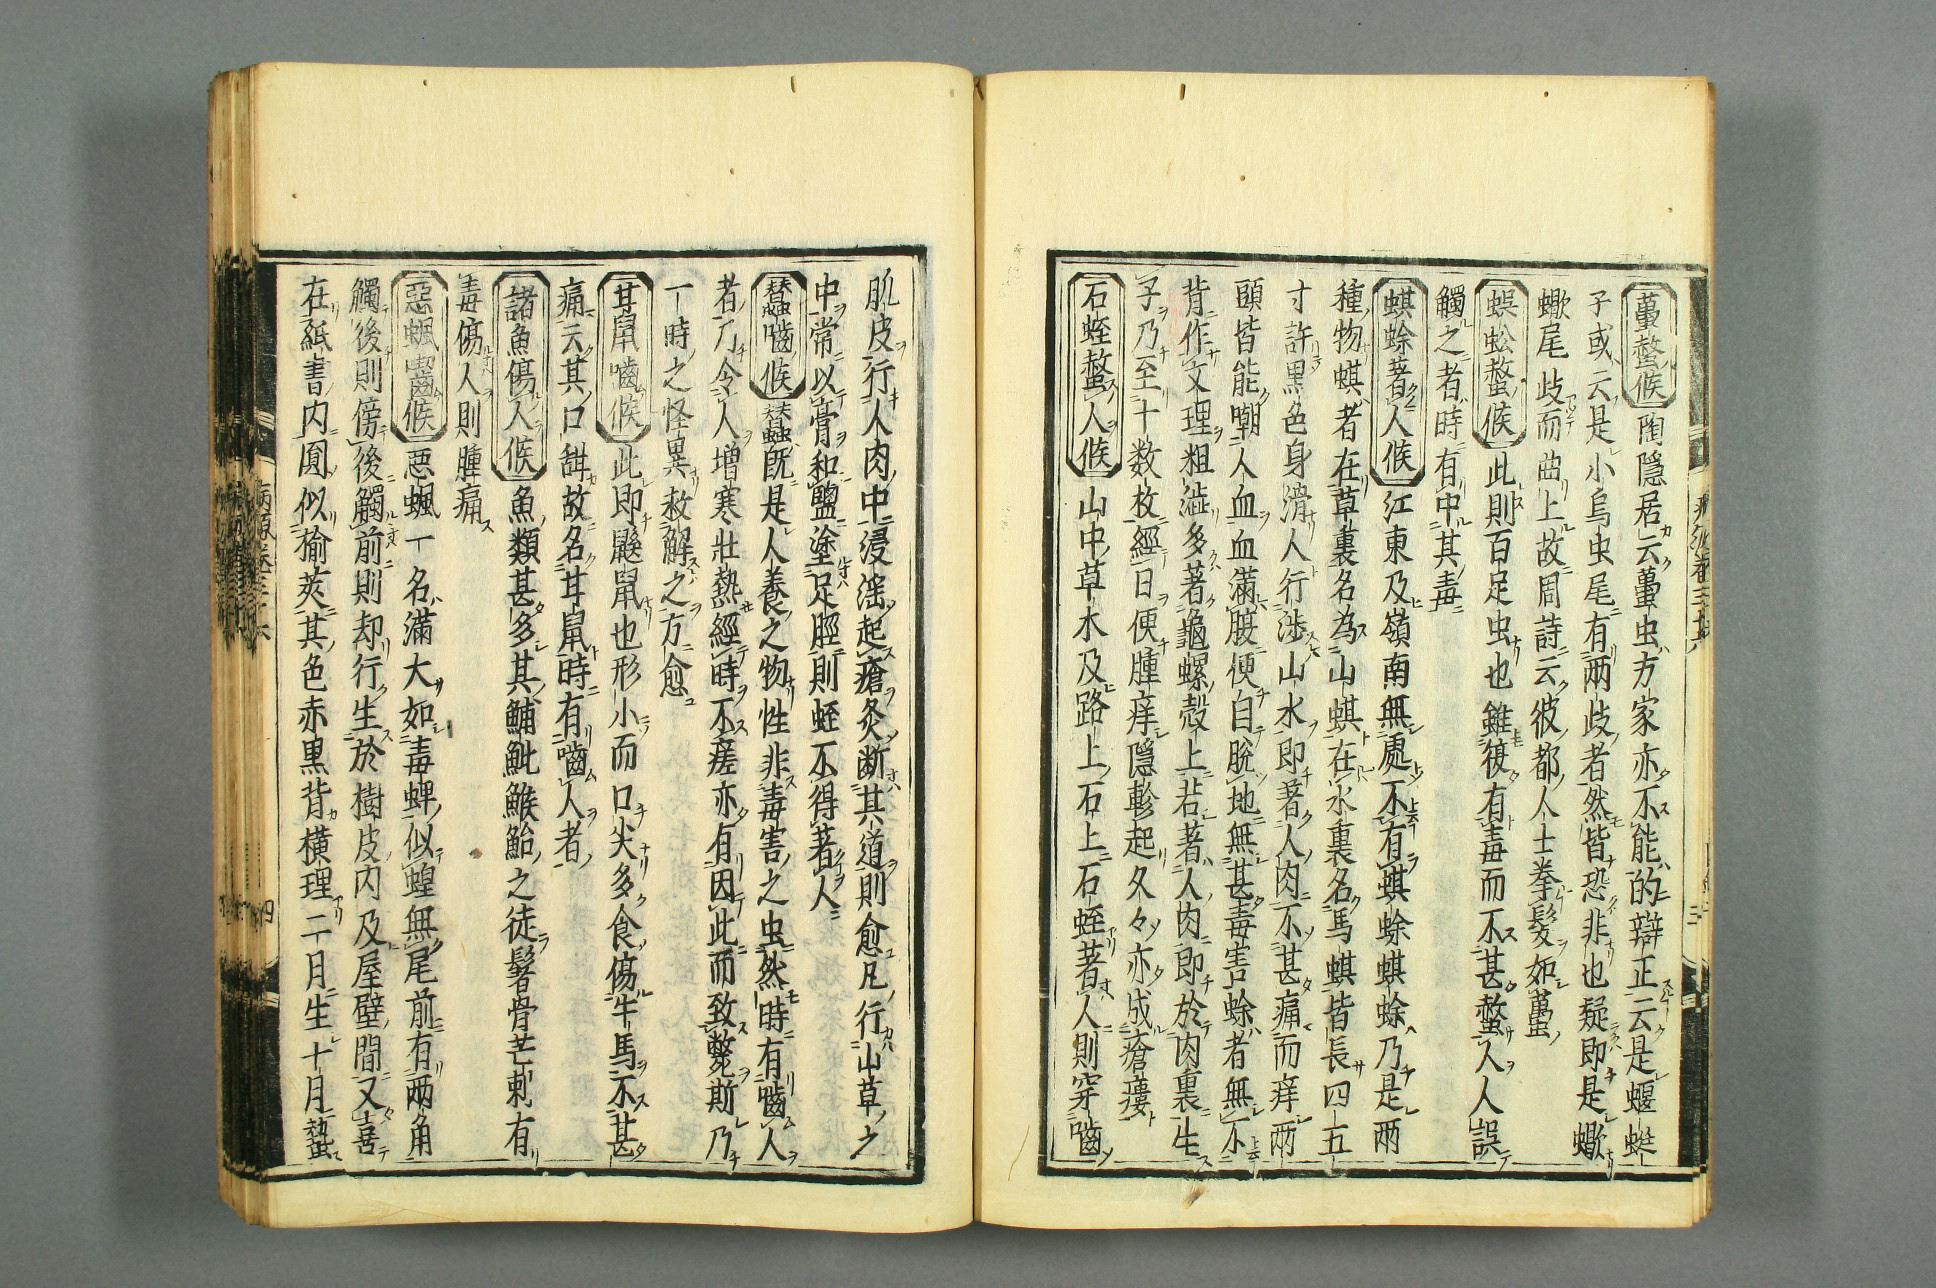 蠆螫候 陶隱居云蠆虫方家亦不能的辯正云是蝘蜓
子或云是小烏虫尾有兩歧者然皆恐非也疑即是蠍
蠍尾歧而曲上故周詩云彼都人士拳髮如蠆
蜈蚣螫候 此則百足虫也雖復有毒而不甚螫人人誤
觸之者時有中其毒
蜞蜍著人候 江東及嶺南無處不有蜞蜍蜞蜍乃是兩
種物蜞者在草裏名為山蜞在水裏名馬蜞皆長四五
寸許黑色身滑人行涉山水即著人肉不甚痛而痒兩
頤皆能嘲人血血滿腹便自脫地無甚毒害蜍者無不
背作文理粗澁多著龜螺殼上若著人肉即於肉裏生
子乃至十数枚經日便腫痒隱軫起久々亦成瘡瘻
石蛭螫人候 山中草木及路上石上石蛭著人則穿嚙
肌皮行人肉中浸滛起瘡灸断其道則愈凡行山草之
中常以膏和鹽塗足脛則蛭不得著人
蠶嚙候 蠶既是人養之物性非毒害之虫然時有嚙人
者乃令人增寒壯熱經時不瘥亦有因此而致斃斯乃
一時之怪異救解之方愈
甘䑕嚙候 此即鼷䑕也形小而口尖多食傷牛馬不甚
痛云其口甜故名甘䑕時有嚙人者
諸魚傷人候 魚類甚多其鯆魮鯸鮐之徒鬐骨芒刺有
毒傷人則腫痛
惡䗀齧候 惡䗀一名滿大如毒蜱似蝗無尾前有兩角
觸後則傍後觸前則却行生於樹皮内及屋壁間又喜
在紙書内圓似榆莢其色赤黒背橫理二月生十月蟄
病源卷三十六
四